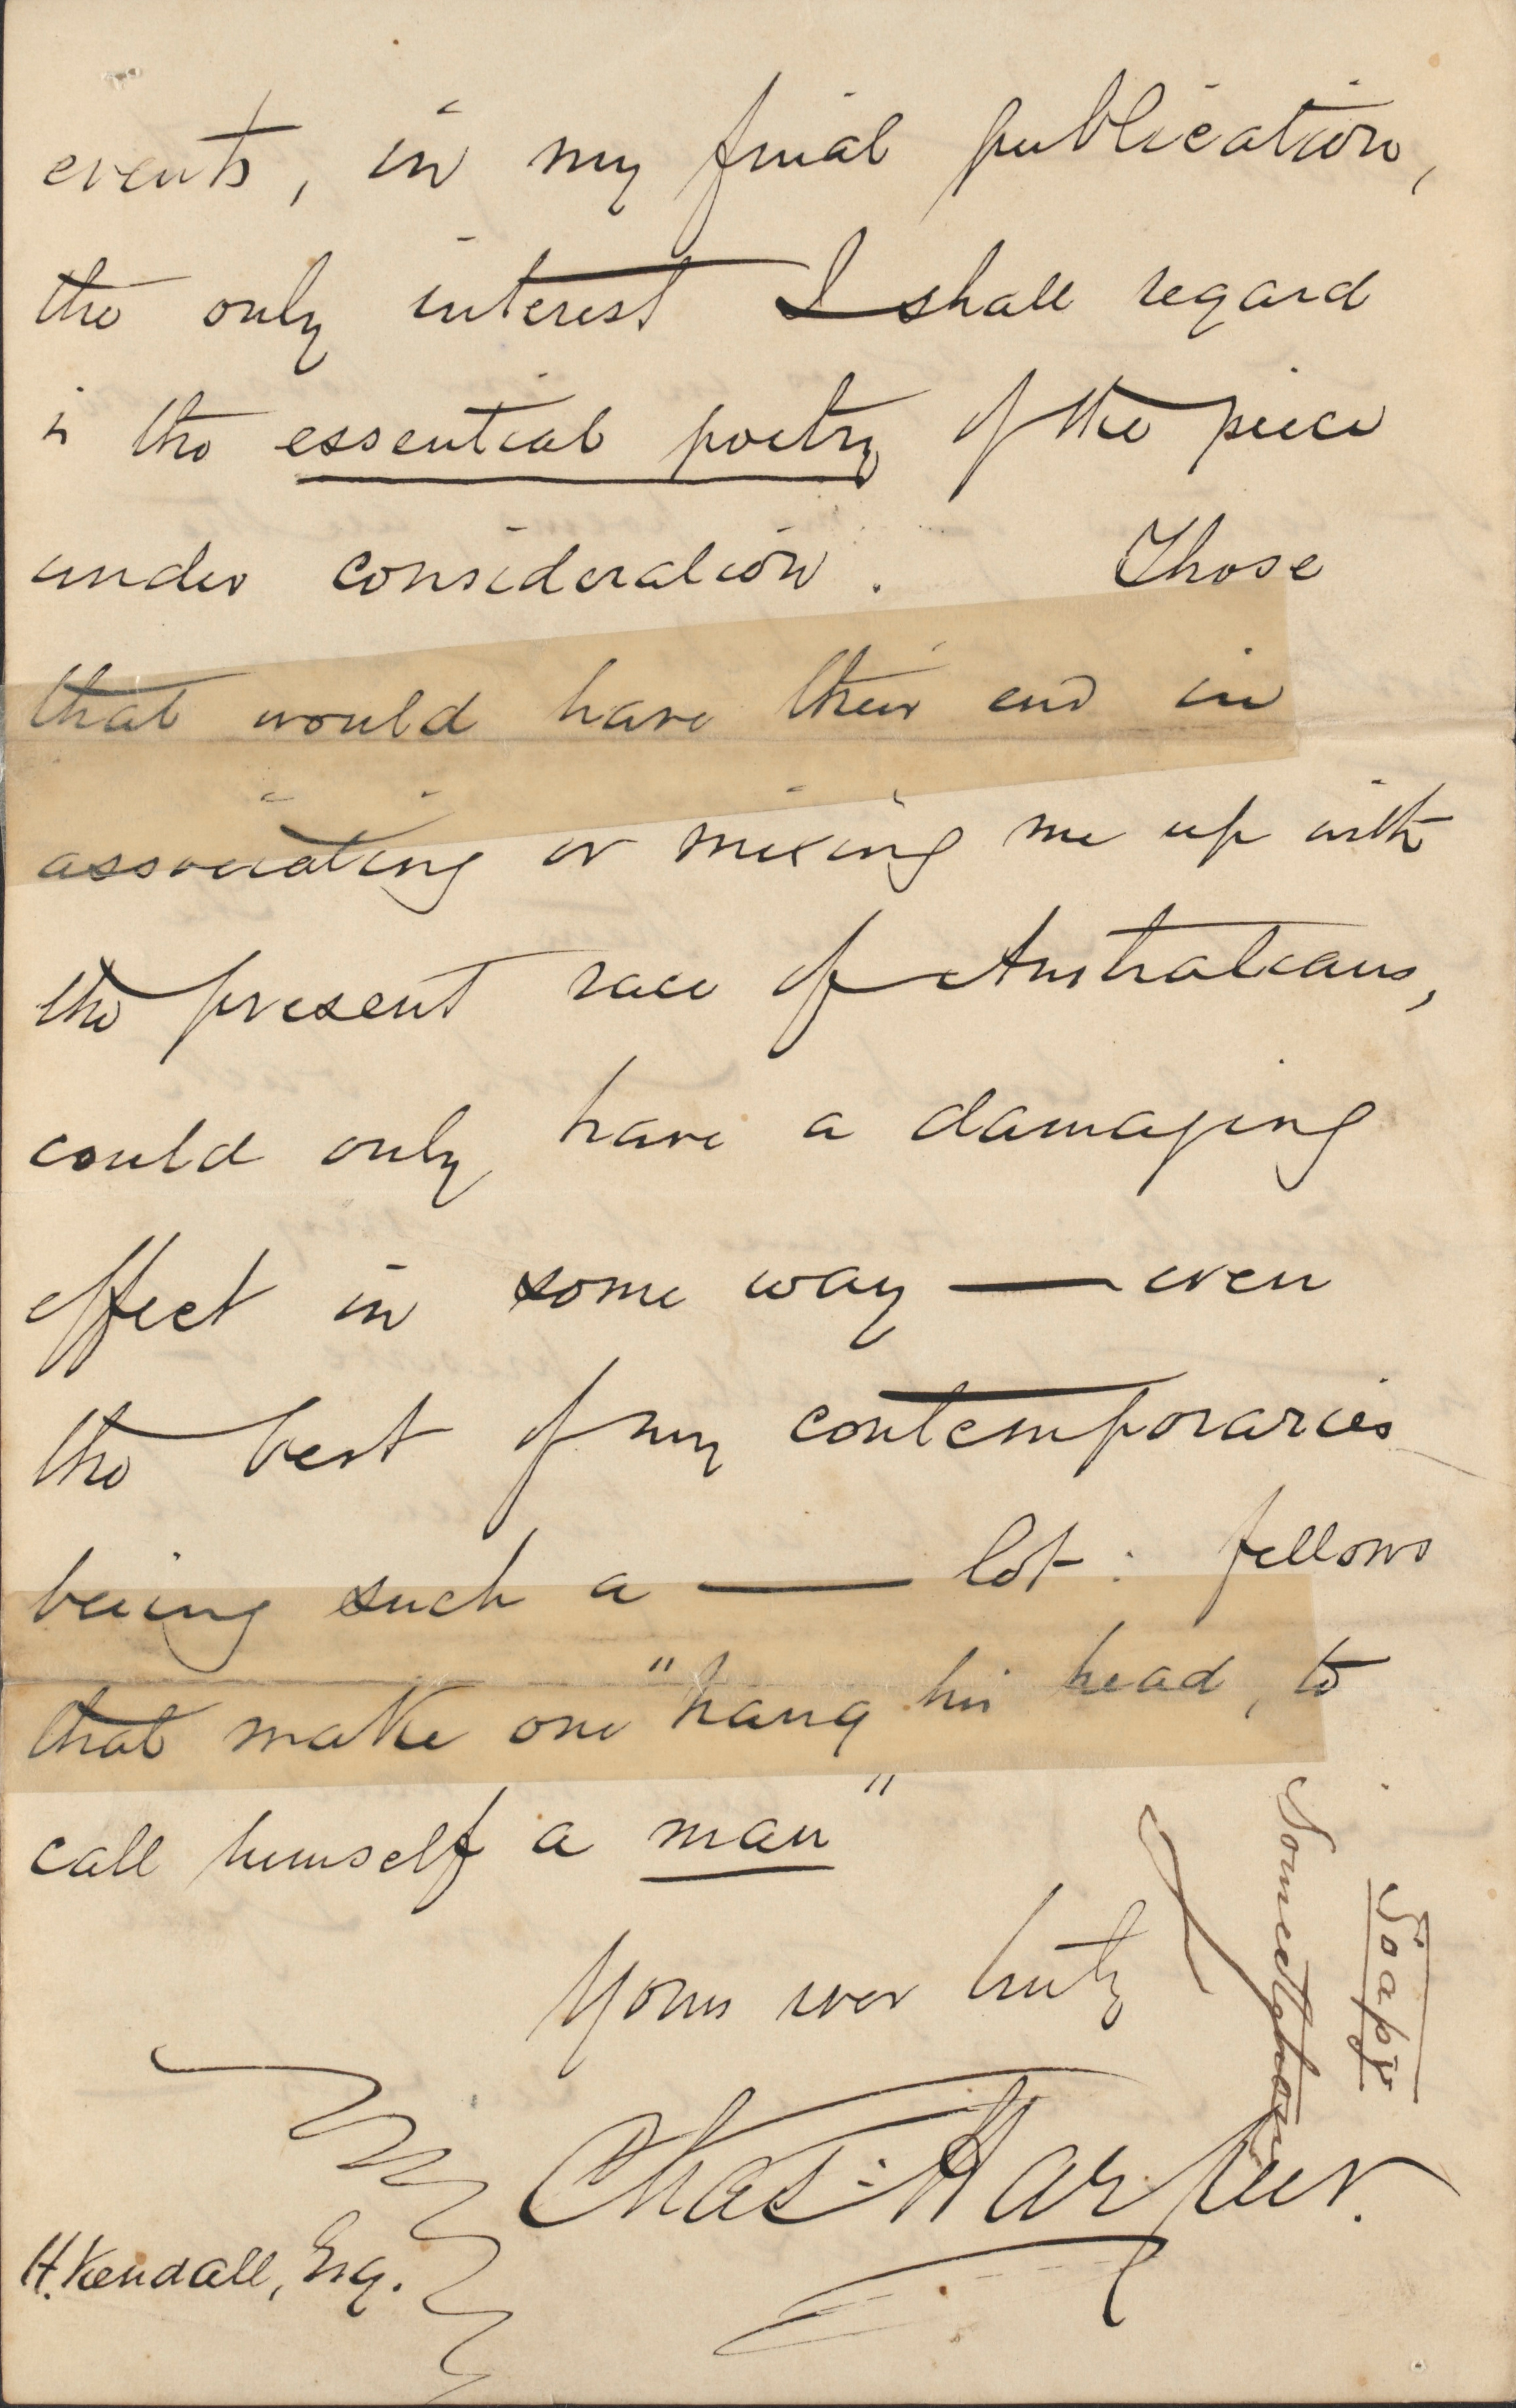 events, in my final publication,
the only interest I shall regard
is the essential poetry of the piece
under consideration. Those
that would have their end in
associating or mixing me up with
the present race of Australians,
could only have a damaging
effect in some way — even
the best of my contemporaries
being such a — lot: fellows
that make one "hang his head, to
call himself a man"
Yours ever truly
Chas: Harpur.
H. Kendall, Esq.
Soapy